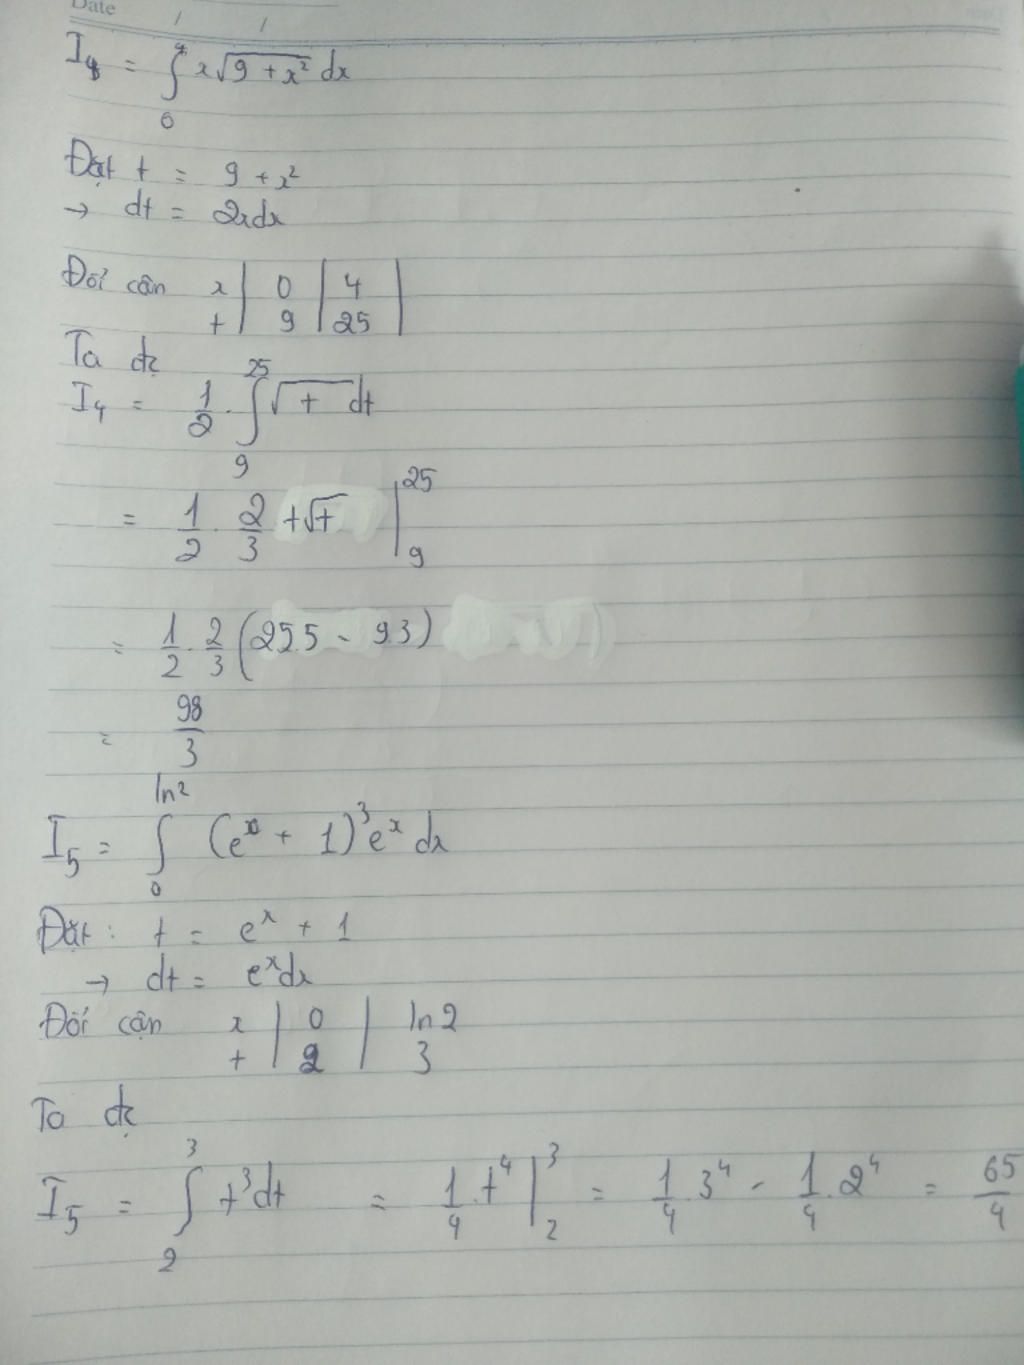 Date / /
I₄ = ∫₀⁴ x√(9 + x²) dx
Đặt t = 9 + x²
→ dt = 2xdx
Đổi cận x | 0 | 4 |
t | 9 | 25 |
Ta đc
I₄ = 1/2 . ∫₉²⁵ √t dt
= 1/2 . 2/3 t√t |₉²⁵
= 1/2 . 2/3 (25.5 - 9.3)
= 98/3
I₅ = ∫₀^(ln2) (eˣ + 1)³eˣ dx
Đặt : t = eˣ + 1
→ dt = eˣdx
Đổi cận x | 0 | ln2
t | 2 | 3
Ta đc
I₅ = ∫₂³ t³dt = 1/4 . t⁴ |₂³ = 1/4 . 3⁴ - 1/4 . 2⁴ = 65/4